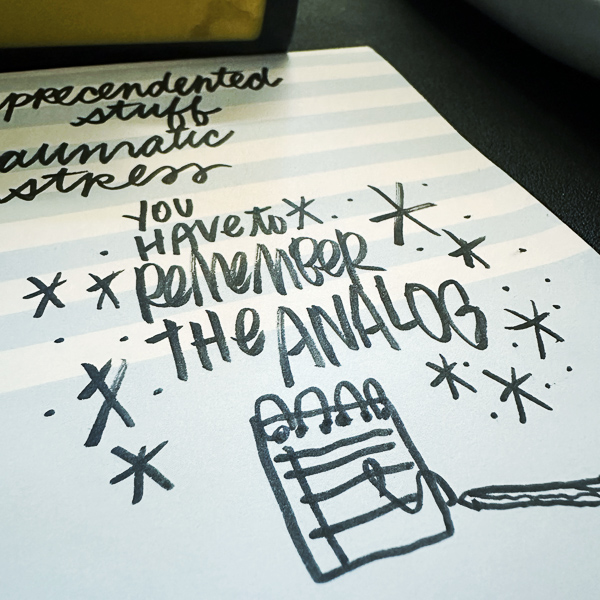 precendented
stuff
aumatic
stress
YOU
HAVE to
REMEMBER
THE ANALOG